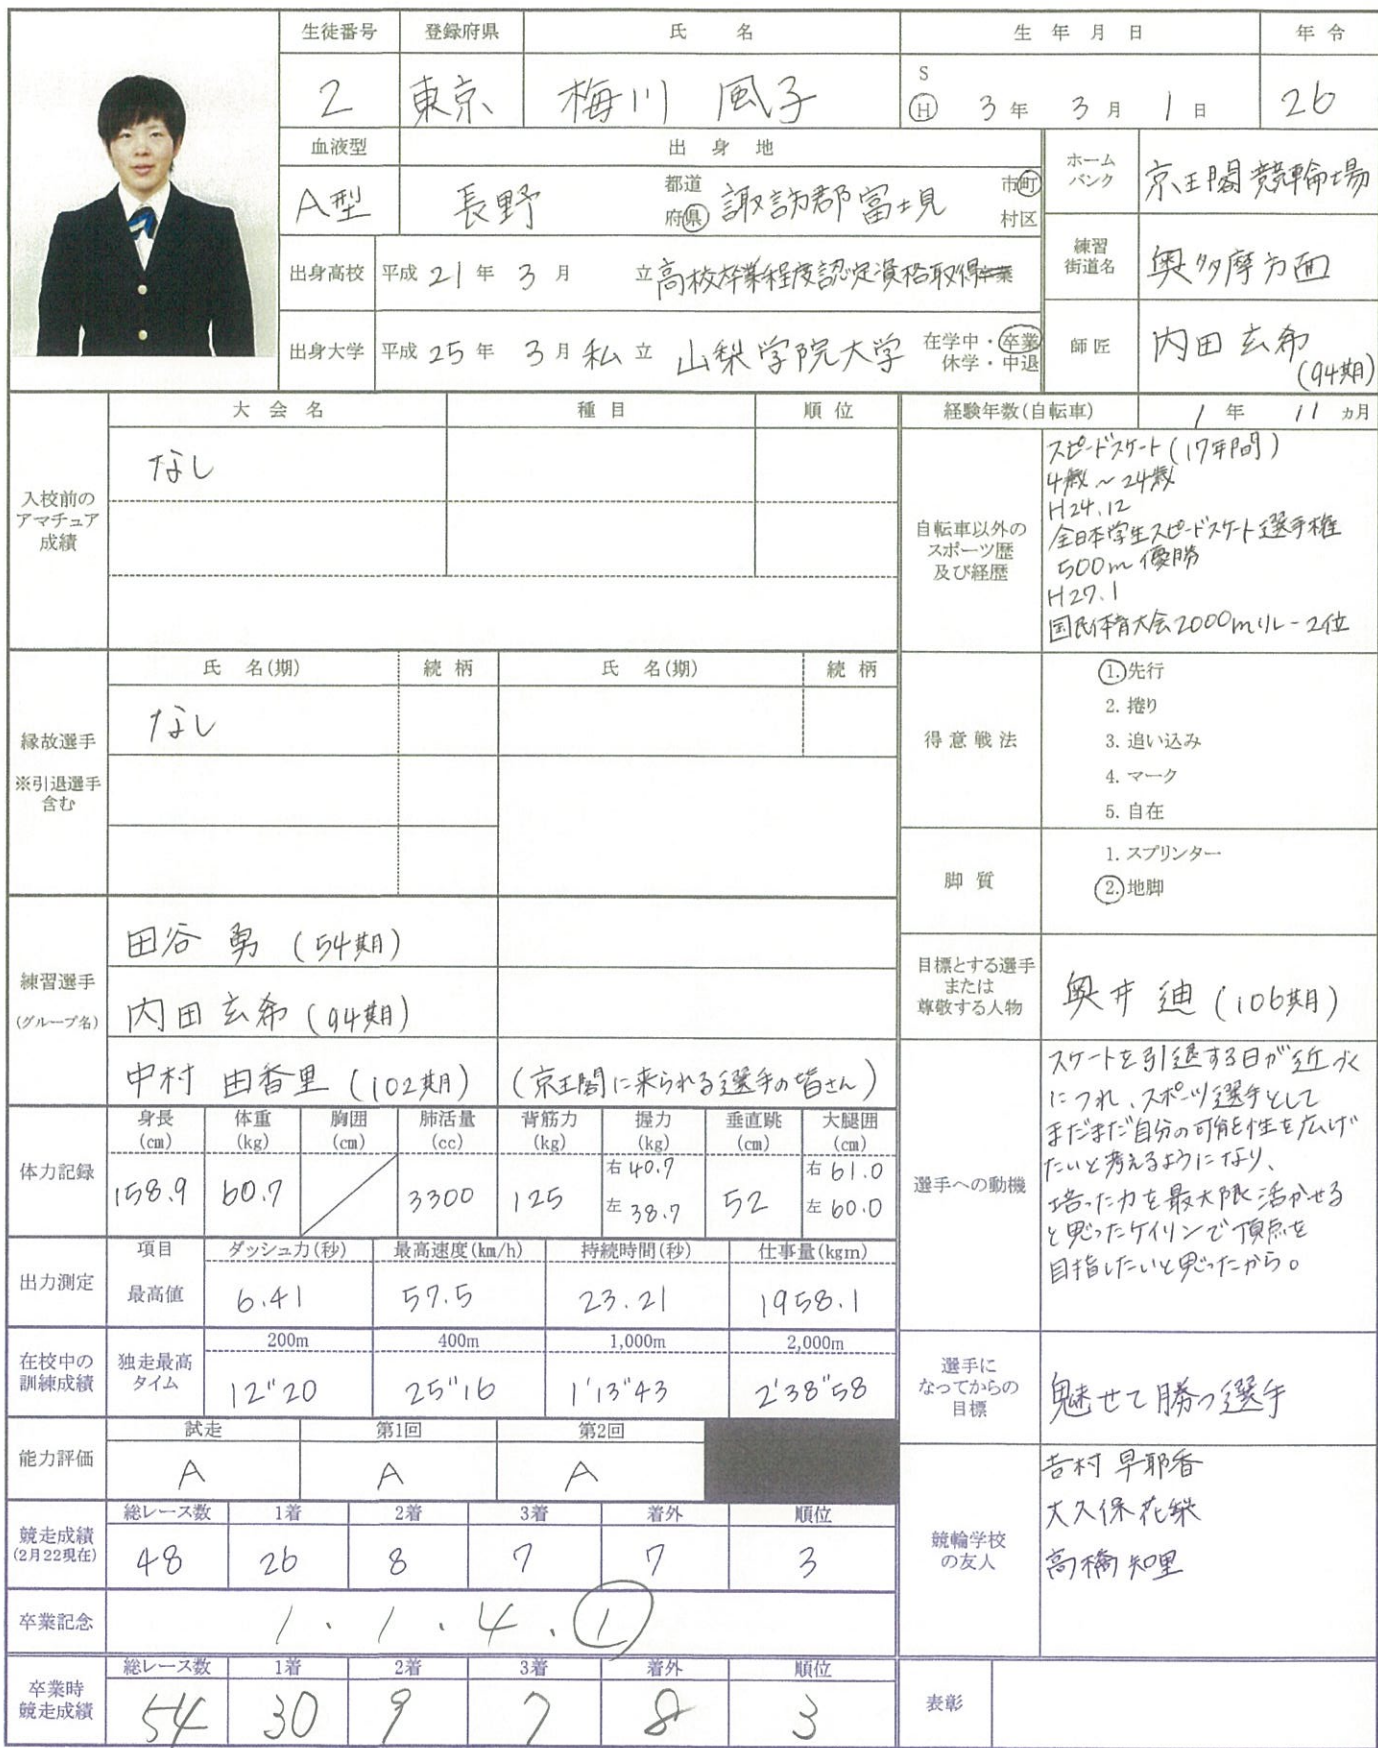 生徒番号 登録府県 氏 名 生 年 月 日 年 令
2 東京 梅川 風子 S H 3 年 3 月 1 日 26
血液型 出 身 地 ホームバンク 京王閣競輪場
A型 長野 都道府県 諏訪郡富士見 市町村区
練習街道名 奥多摩方面
出身高校 平成 21 年 3 月 立 高校卒業程度認定資格取得 卒業
出身大学 平成 25 年 3 月 私 立 山梨学院大学 在学中・卒業 休学・中退
師匠 内田 玄希 (94期)
入校前のアマチュア成績
大 会 名 種 目 順 位
なし
経験年数(自転車) 1 年 11 ヵ月
自転車以外のスポーツ歴及び経歴
スピードスケート(17年間)
4歳~24歳
H24.12
全日本学生スピードスケート選手権
500m 優勝
H27.1
国民体育大会2000mリレー2位
縁故選手
※引退選手含む
氏 名(期) 続 柄 氏 名(期) 続 柄
なし
得 意 戦 法
1. 先行
2. 捲り
3. 追い込み
4. マーク
5. 自在
脚 質
1. スプリンター
2. 地脚
練習選手
(グループ名)
田谷 勇 (54期)
内田 玄希 (94期)
中村 由香里 (102期) (京王閣に来られる選手の皆さん)
目標とする選手または尊敬する人物
奥井 迪 (106期)
体力記録
身長(cm) 体重(kg) 胸囲(cm) 肺活量(cc) 背筋力(kg) 握力(kg) 垂直跳(cm) 大腿囲(cm)
158.9 60.7 3300 125 右 40.7 左 38.7 52 右 61.0 左 60.0
選手への動機
スケートを引退する日が近づく
につれ、スポーツ選手として
まだまだ自分の可能性を広げ
たいと考えるようになり、
培った力を最大限活かせる
と思ったケイリンで頂点を
目指したいと思ったから。
出力測定
項目 ダッシュ力(秒) 最高速度(km/h) 持続時間(秒) 仕事量(kgm)
最高値 6.41 57.5 23.21 1958.1
在校中の訓練成績
独走最高タイム
200m 400m 1,000m 2,000m
12"20 25"16 1'13"43 2'38"58
選手になってからの目標
魅せて勝つ選手
能力評価
試走 第1回 第2回
A A A
競輪学校の友人
吉村 早耶香
大久保 花梨
高橋 知里
競走成績
(2月22現在)
総レース数 1着 2着 3着 着外 順位
48 26 8 7 7 3
卒業記念
1 . 1 . 4 . ①
卒業時競走成績
総レース数 1着 2着 3着 着外 順位
54 30 9 7 8 3
表彰